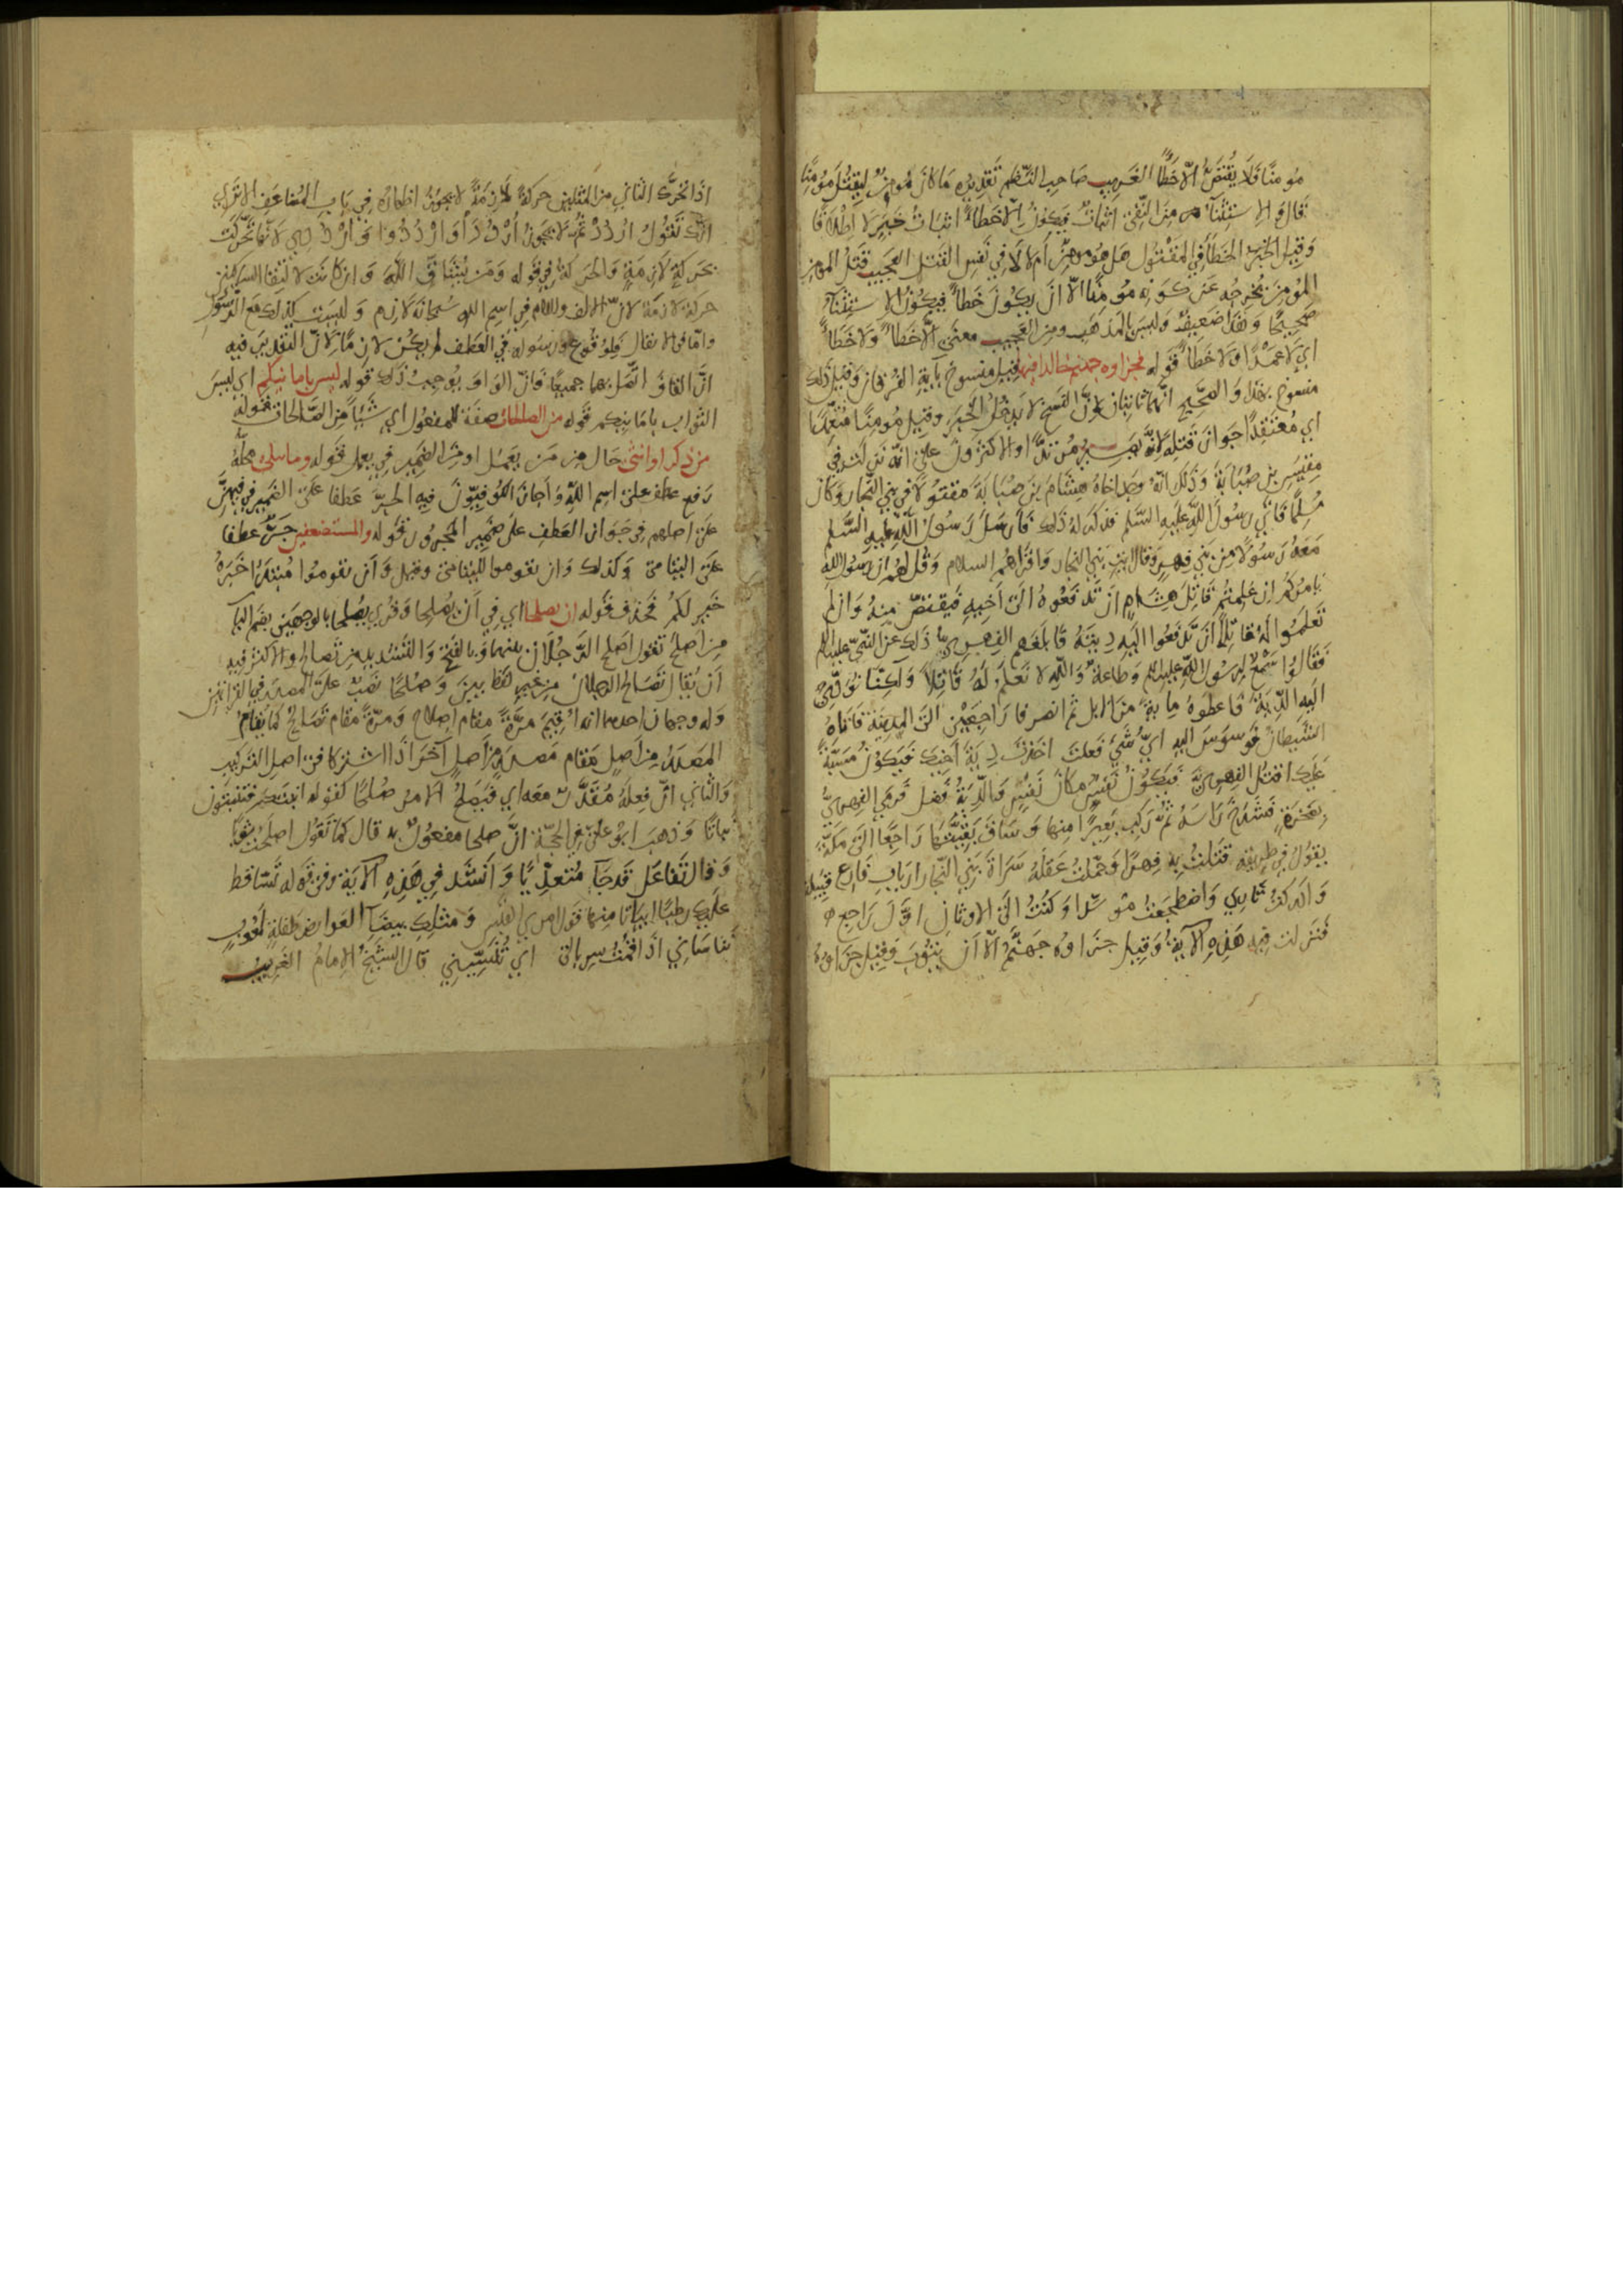 مومنا فلا يقتص الا خطأ الغريب صاحب النظم تقديره ما كان مومن ليقتل مومنا
قال و الاستثناء من النفي اثبات فيكون الا خطأ اثبات خبر لا اطلاقا
وقيل الخبر الخطأ في المقتول هل هو مومن ام لا لا في نفس القتل العجيب قتل المومن
المومن يخرجه عن كونه مومنا الا ان يكون خطأ فيكون الاستثناء
صحيحا وهذا ضعيف وليس بالمذهب ومن العجيب معنى الا خطأ ولا خطأ
اي لا عمدا ولا خطأ قوله فجزاوه جهنم خالدا فيها قيل منسوخ باية الفرقان وقيل ذلك
منسوخ بهذا والصحيح انهما ثابتان لان النسخ لا يدخل الخبر وقيل مومنا متعمدا
اي معتقدا جواز قتله لانه يصير مرتدا والاكثرون على انه نزلت في
مقيس بن ضبابة وذلك انه وجد اخاه هشام بن ضبابة مقتولا في بني النجار وكان
مسلما فاتى رسول الله عليه السلم فذكر له ذلك فارسل رسول الله عليه السلم
معه رسولا من بني فهر وقال ايت بني النجار واقرأهم السلام وقل لهم ان رسول الله
يامركم ان علمتم قاتل هشام ان تدفعوه الى اخيه فيقتص منه وان لم
تعلموا له قاتلا ان تدفعوا اليه ديته فابلغهم الفهري ذلك عن النبي عليه السلم
فقالوا سمع لرسول الله عليه السلم وطاعة والله لا نعلم له قاتلا ولكنا نودي
اليه الدية فاعطوه مائة من الابل ثم انصرفا راجعين الى المدينة فاتاه
الشيطان فوسوس اليه اي شي فعلت اخذت دية اخيك فيكون مسبة
عليك اقتل الفهري فيكون نفس مكان نفس والدية فضل فرمى الفهري
بصخرة فشدخ رأسه ثم ركب بعيرا منها وساق بقيتها راجعا الى مكة
يقول في طريقه قتلت به فهرا وحملت عقله سراة بني النجار ارباب فارع
وادركت ثاري واضطجعت موسدا وكنت الى الاوثان اول راجع
فنزلت فيه هذه الاية وقيل جزاوه جهنم الا ان يتوب وقيل جزاوه
اذا تحرك الثاني من المثلين حركة لازمة لا يجوز اظهاره في باب المضاعف الا ترى
انك تقول اردد ثم لا يجوز ارددا وارددوا وارددي لانها تحركت
بحركة لازمة والحركة في قوله ومن يشاقق الله وان كانت لالتقا الساكنين
حركة لازمة لان الالف واللام في اسم الله سبحانه لازم وليست كذلك مع الرسول
واما في الانفال فلوقوع ورسوله في العطف لم يكن لازما لان التقدير فيه
ان القاف اتصل بهما جميعا فان الواو يوجب ذلك قوله ليس بامانيكم اي ليس
الثواب بامانيكم قوله من الصالحات صفة للمفعول اي شيئا من الصالحات قوله
من ذكر او انثى حال من من يعمل او من الضمير في يعمل قوله وما يتلى محله
رفع عطف على اسم الله واجاز الكوفيون فيه الجر عطفا على الضمير في فيهن
على اصلهم في جواز العطف على ضمير المجرور قوله والمستضعفين جر عطفا
على اليتامى وكذلك وان تقوموا لليتامى وقيل وان تقوموا مبتدا خبره
خير لكم فحذف قوله ان يصلحا اي في ان يصلحا وقري يصلحا بالوجهين بضم اليا
من اصلح تقول اصلح الرجلان بينهما وبالفتح والتشديد من تصالح والاكثر فيه
ان يقال تصالح الرجلان من غير لفظ بين وصلحا نصب على المصدر في القراتين
وله وجهان احدهما انه اقيم مرة مقام اصلاح ومرة مقام تصالح كما يقام
المصدر من اصل مقام مصدر من اصل آخر اذا اشتركا في اصل التركيب
والثاني ان فعله مقدر معه اي فيصلح الامر صلحا كقوله انبتكم فتنبتون
نباتا وذهب ابو علي في الحجة ان صلحا مفعول به قال كما تقول اصلحت ثوبا
وقال تفاعل قد جا متعديا وانشد في هذه الاية وفي قوله تساقط
عليك رطبا ابياتا منها قول امري القيس ومثلك بيضا العوارض طفلة لعوب
تناساني اذا قمت سربالي اي تنسيني قال الشيخ الامام الغريب